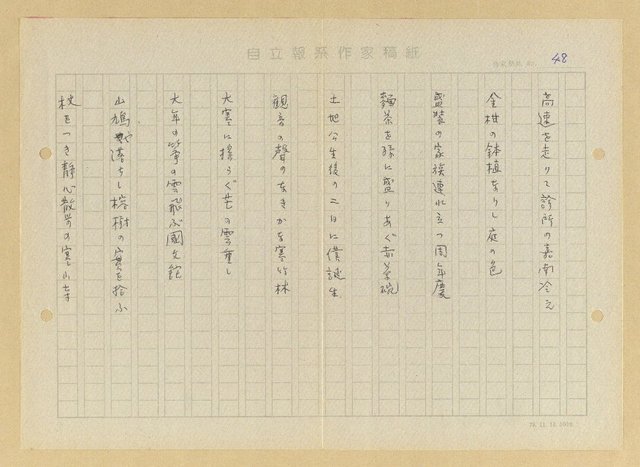 自立報系作家稿紙
48
高速を走りて診所の嘉南冷え
金柑の鉢植なりし庭の色
盛装の家族連れ立つ周年慶
麵茶を孫に盛りあぐ赤茶碗
土地公生後の二日に僕誕生
観音の聲のなきかな寒竹林
大寒に揺らぐ芒の雲重し
大年の筆の雲飛ぶ國父館
山鳩が落ちし榕樹の實を拾ふ
杖をつき静心散歩の寒山寺
79.11.15.2000